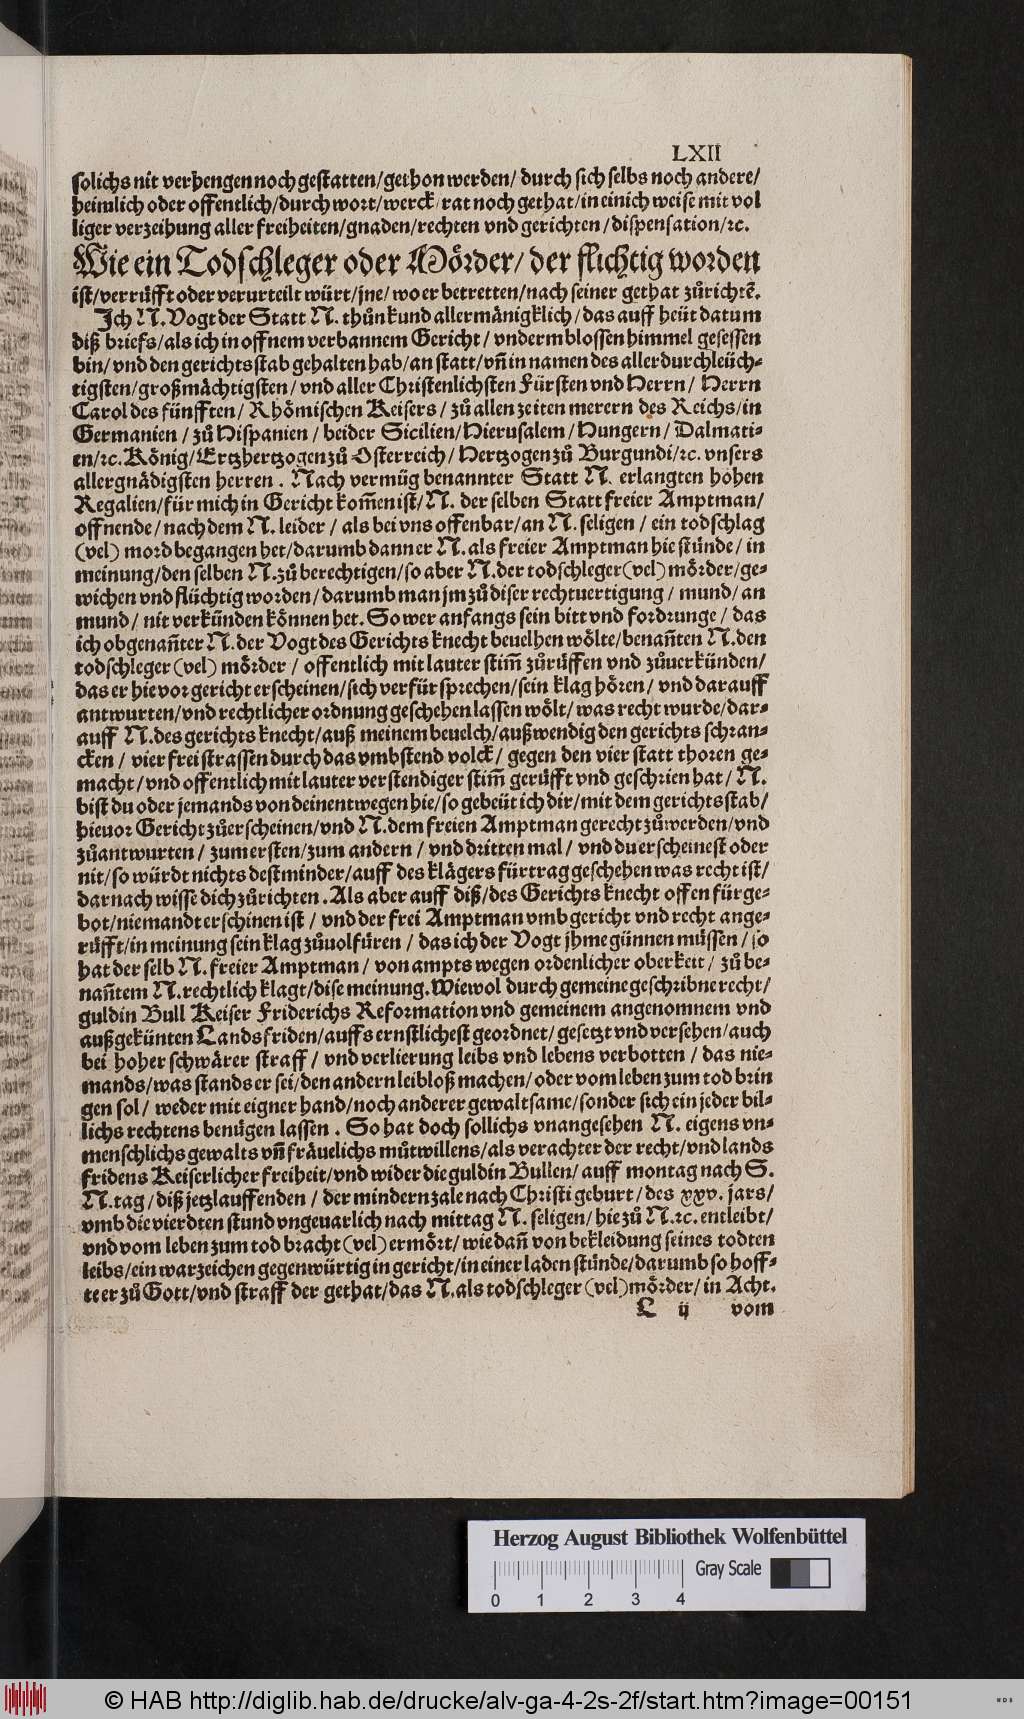 LXII
solichs nit verhengen noch gestatten/gethon werden/ durch sich selbs noch andere/
heimlich oder offentlich/durch wort/werck/rat noch gethat/in einich weise mit vol
liger verzeihung aller freiheiten/gnaden/rechten vnd gerichten/dispensation/ꝛc.
Wie ein Todschleger oder Mörder/ der flichtig worden
ist/verrüfft oder verurteilt würt/jne/wo er betretten/nach seiner gethat zůrichtẽ.
Ich N. Vogt der Statt N. thůnkund allermänigklich/das auff heüt datum
diß briefs/als ich in offnem verbannem Gericht/ vnderm blossen himmel gesessen
bin/vnd den gerichtsstab gehalten hab/an statt/vñ in namen des allerdurchleüch-
tigsten/großmächtigsten/vnd aller Christenlichsten Fürsten vnd Herrn/ Herrn
Carol des fünfften/ Rhömischen Keisers/zů allen zeiten merern des Reichs/in
Germanien/zů Hispanien/ beider Sicilien/Hierusalem/Hungern/Dalmati-
en/ꝛc. König/Ertzhertzogen zů Osterreich/ Hertzogen zů Burgundi/ꝛc. vnsers
allergnädigsten herren. Nach vermüg benannter Statt N. erlangten hohen
Regalien/für mich in Gericht kom̃en ist/N. der selben Statt freier Amptman/
offnende/nach dem N. leider/als bei vns offenbar/an N. seligen/ein todschlag
(vel) mord begangen het/darumb dann er N. als freier Amptman hie stünde/in
meinung/den selben N. zů berechtigen/so aber N. der todschleger(vel) mörder/ge-
wichen vnd flüchtig worden/darumb man jm zů diser rechtuertigung/mund/an
mund/nit verkünden können het. So wer anfangs sein bitt vnd fordrunge/das
ich obgenañter N. der Vogt des Gerichts knecht beuelhen wölte/benañten N. den
todschleger (vel) mörder/ offentlich mit lauter stim̃ zůrüffen vnd zůuerkünden/
das er hieuor gericht erscheinen/sich verfürsprechen/sein klag hören/ vnd darauff
antwurten/vnd rechtlicher ordnung geschehen lassen wölt/was recht wurde/dar-
auff N. des gerichts knecht/auß meinem beuelch/außwendig den gerichts schran-
cken/ vier frei strassen durch das vmbstend volck/gegen den vier statt thoren ge-
macht/vnd offentlich mit lauter verstendiger stim̃ gerüfft vnd geschrien hat/N.
bist du oder jemands von deinentwegen hie/so gebeüt ich dir/mit dem gerichtsstab/
hieuor Gericht zůerscheinen/vnd N. dem freien Amptman gerecht zůwerden/vnd
zůantwurten/ zum ersten/zum andern/ vnd dritten mal/vnd du erscheinest oder
nit/so würdt nichts destminder/auff des klägers fürtrag geschehen was recht ist/
darnach wisse dich zůrichten. Als aber auff diß/des Gerichts knecht offen fürge-
bot/niemandt erschinen ist/vnd der frei Amptman vmb gericht vnd recht ange-
rüfft/in meinung sein klag zůuolfüren/das ich der Vogt jhme günnen müssen/so
hat der selb N. freier Amptman/von ampts wegen ordenlicher oberkeit/zů be-
nañtem N. rechtlich klagt/dise meinung. Wiewol durch gemeine geschribne recht/
guldin Bull Keiser Friderichs Reformation vnd gemeinem angenomnem vnd
außgekünten Landsfriden/auffs ernstlichest geordnet/gesetzt vnd versehen/auch
bei hoher schwärer straff/vnd verlierung leibs vnd lebens verbotten/das nie-
mands/was stands er sei/den andern leibloß machen/oder vom leben zum tod brin
gen sol/ weder mit eigner hand/noch anderer gewaltsame/sonder sich ein jeder bil-
lichs rechtens benügen lassen. So hat doch sollichs vnangesehen N. eigens vn-
menschlichs gewalts vñ fräuelichs můtwillens/als verachter der recht/vnd lands
fridens Keiserlicher freiheit/vnd wider die guldin Bullen/ auff montag nach S.
N. tag/diß jetzlauffenden/der mindern zale nach Christi geburt/des xxv. jars/
vmb die vierdten stund vngeuarlich nach mittag N. seligen/hie zů N. ꝛc. entleibt/
vnd vom leben zum tod bracht (vel) ermört/wie dañ von bekleidung seines todten
leibs/ein warzeichen gegenwürtig in gericht/in einer laden stünde/darumb so hoff-
te er zů Gott/vnd straff der gethat/das N. als todschleger (vel)mörder/in Acht.
L ij vom
Herzog August Bibliothek Wolfenbüttel
Gray Scale
0 1 2 3 4
© HAB http://diglib.hab.de/drucke/alv-ga-4-2s-2f/start.htm?image=00151